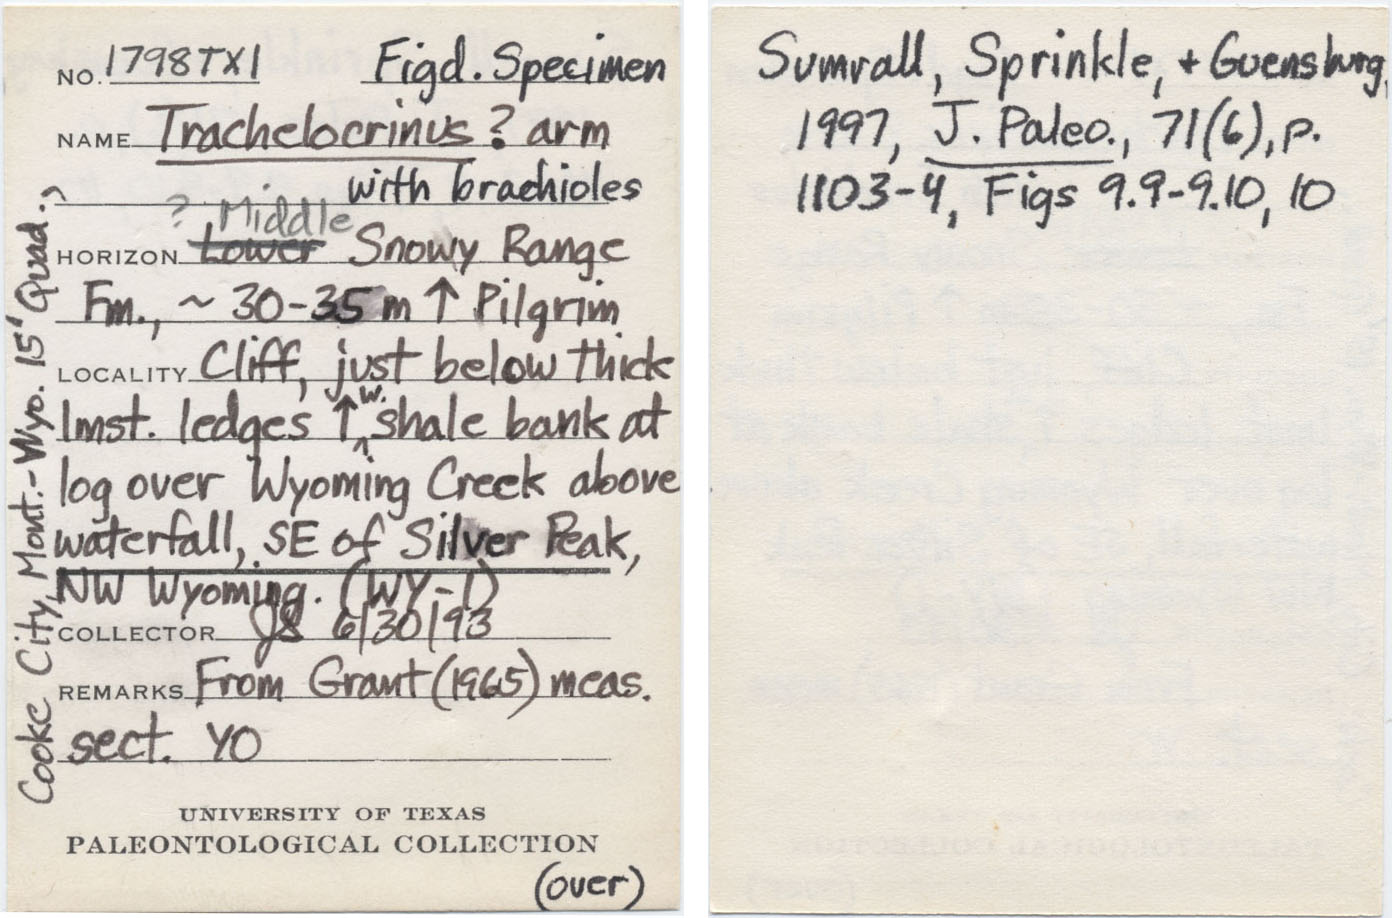 NO. 1798TX1 Figd. Specimen
NAME Trachelocrinus ? arm
with brachioles
? Middle
HORIZON Lower Snowy Range
Fm., ~ 30-35 m ↑ Pilgrim
LOCALITY Cliff, just below thick
lmst. ledges ↑ w. shale bank at
log over Wyoming Creek above
waterfall, SE of Silver Peak,
NW Wyoming. (WY-1)
COLLECTOR JS 6/30/93
REMARKS From Grant (1965) meas.
sect. YO
Cooke City, Mont.-Wyo. 15' Quad.,
UNIVERSITY OF TEXAS
PALEONTOLOGICAL COLLECTION
(over)
Sumrall, Sprinkle, + Guensburg,
1997, J. Paleo., 71(6), p.
1103-4, Figs 9.9-9.10, 10